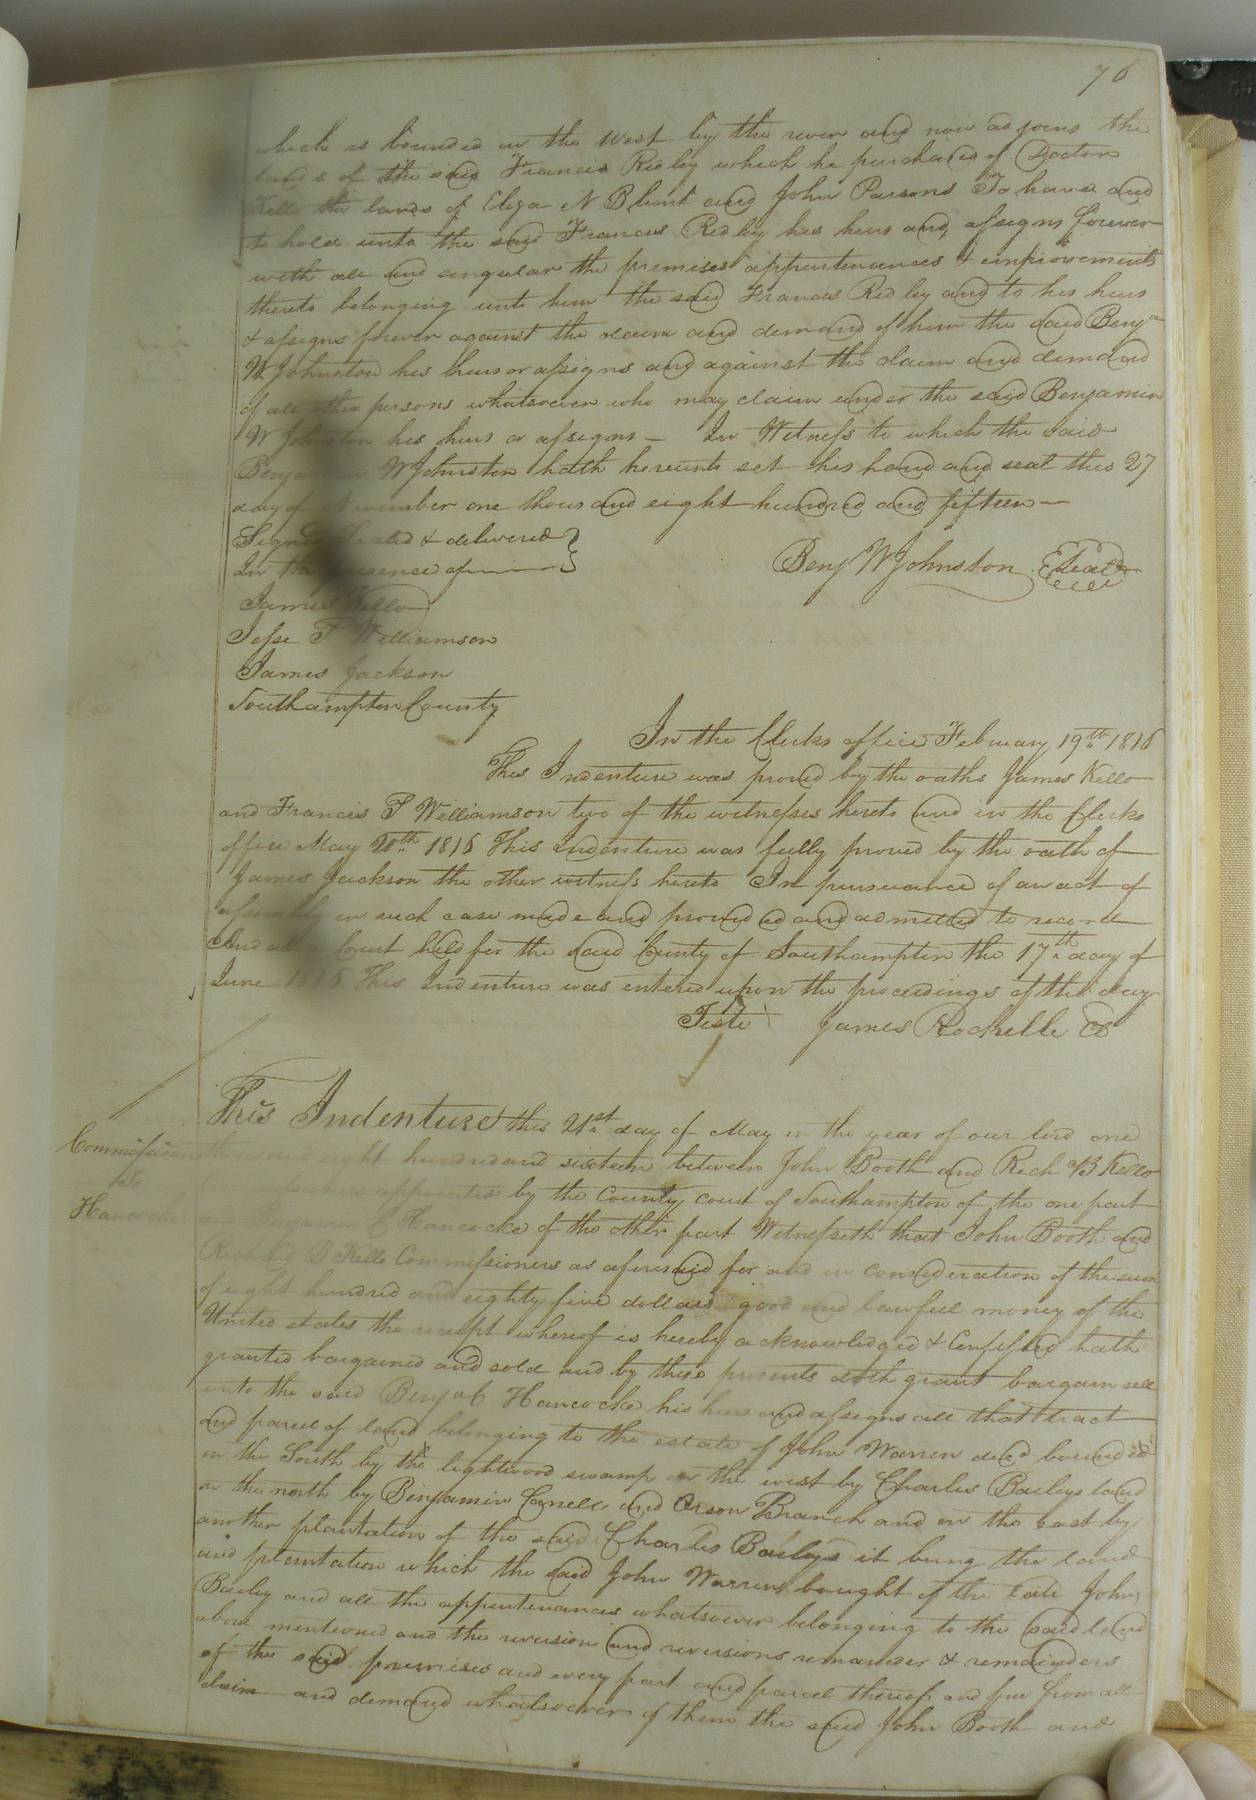 76
which is bounded on the west by the river and now adjoins the
lands of the said Francis Ridley which he purchased of Doctor
Kello the lands of Eliza N Blunt and John Parsons To have and
to hold unto the said Francis Ridley his heirs and assigns forever
with all and singular the premises appurtenances & improvements
thereto belonging unto him the said Francis Ridley and to his heirs
& assigns forever against the claim and demand of him the said Benja
W Johnston his heirs or assigns and against the claim and demand
of all other persons whatsoever who may claim under the said Benjamin
W Johnston his heirs or assigns — In Witness to which the said
Benjamin W Johnston hath hereunto set his hand and seal this 27
day of November one thousand eight hundred and fifteen —
Signed Sealed & delivered
In the presence of
Benj W Johnston Seal
James Kello
Jesse P Williamson
James Jackson
Southampton County
In the Clerks office February 19th 1816
This Indenture was proved by the oaths James Kello
and Francis P Williamson two of the witnesses hereto and in the Clerks
office May 20th 1816 This Indenture was fully proved by the oath of
James Jackson the other witness hereto In pursuance of an act of
assembly in such case made and provided and admitted to record
And at Court held for the said County of Southampton the 17th day of
June 1816 This Indenture was entered upon the proceedings of the day
Teste James Rochelle CC
This Indenture this 21st day of May in the year of our lord one
Commissioners
to
Hancocke
thousand eight hundred and sixteen between John Booth and Rich B Kello
appointed by the County court of Southampton of the one part
and Benjamin C Hancocke of the other part Witnesseth that John Booth and
Richard B Kello Commissioners as aforesaid for and in consideration of the sum
of eight hundred and eighty five dollars good and lawfull money of the
United states the receipt whereof is hereby acknowledged & Confessed hath
granted bargained and sold and by these presents doth grant bargain sell
unto the said Benja C Hancocke his heirs and assigns all that tract
and parcel of land belonging to the estate of John Warren decd bounded
on the South by the lightwood swamp on the west by Charles Baileys land
on the north by Benjamin and Orson Branch and on the East by
another plantation of the said Charles Baileys it being the land
and plantation which the said John Warren bought of the late John
Bailey and all the appurtenances whatsoever belonging to the said land
above mentioned and the reversion and reversions remainder & remainders
of the said premises and every part and parcel thereof and free from all
claim and demand whatsoever of them the said John Booth and